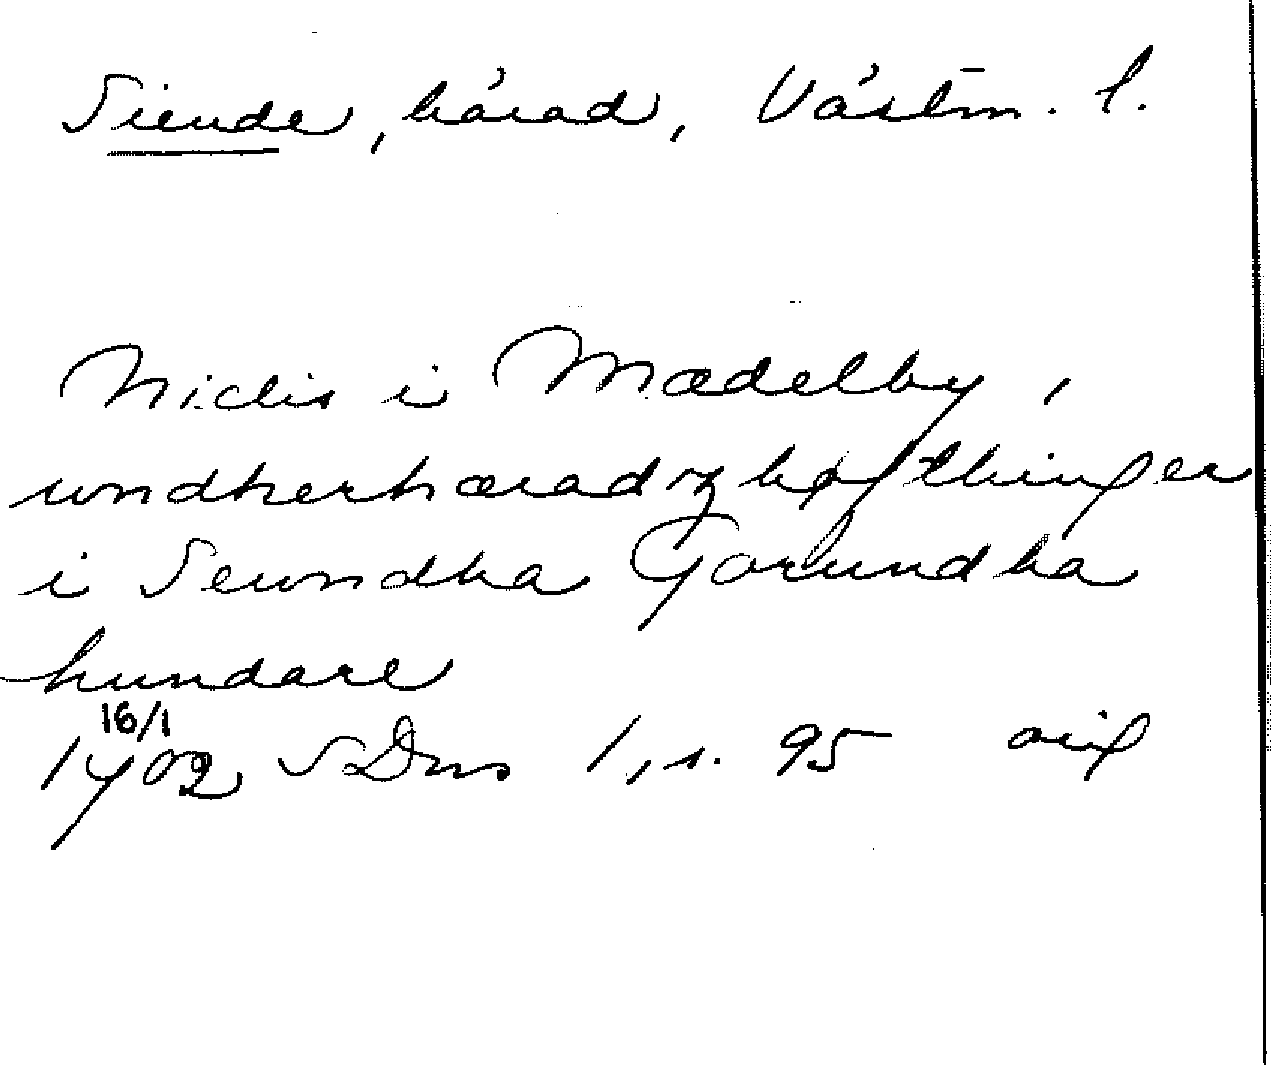 Siende, härad, Västm. l.
Niclis i Mædelby,
wndherhæradzhøfthinger
i Sewndha Gorundha
hundare
16/1
1402 SDns 1, s. 95 orig